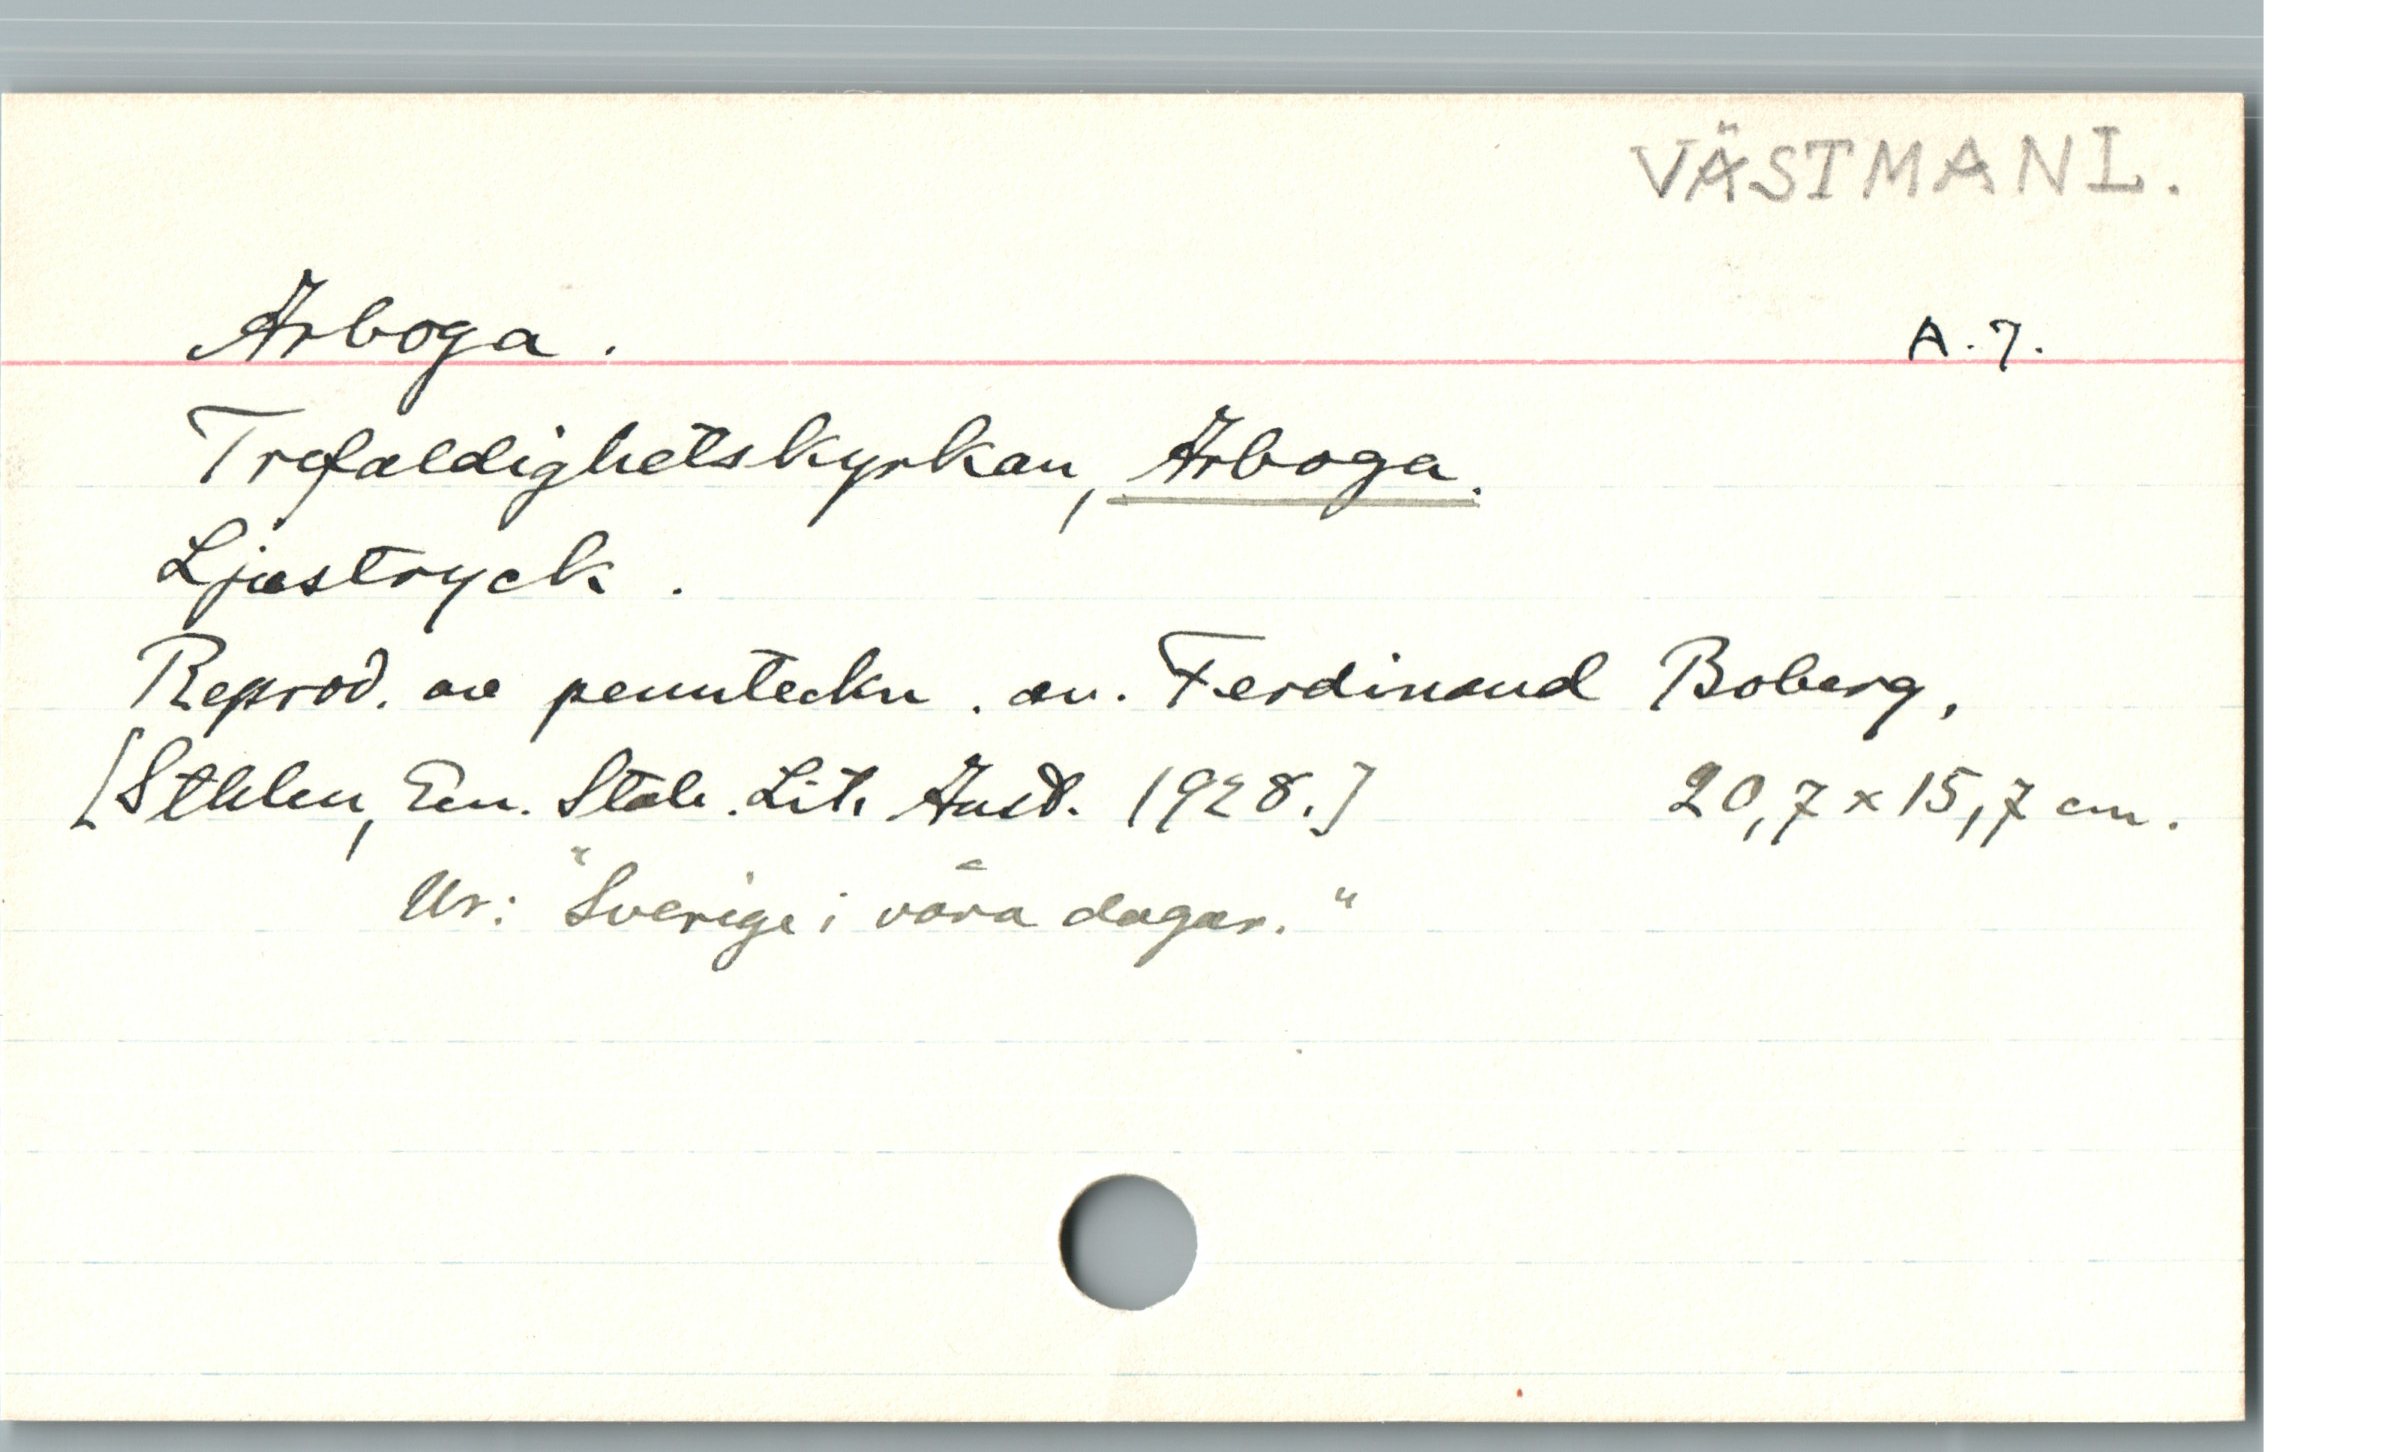 VÄSTMANL.
Arboga. A.7.
Trefaldighetskyrkan, Arboga.
Ljustryck.
Reprod. av pennteckn. av. Ferdinand Boberg,
[Sthlm, Gen. Stab. Lit. Anst. 1928.] 20,7 x 15,7 cm.
Ur: "Sverige i våra dagar."